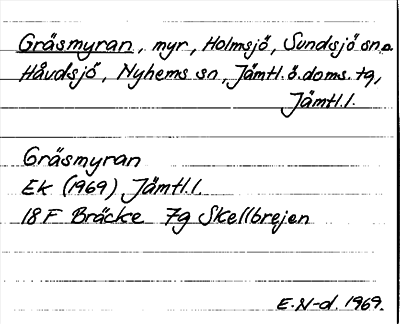 Gräsmyran, myr, Holmsjö, Sundsjö sn o
Håvdsjö, Nyhems sn, Jämtl.ö.doms. tg,
Jämtl.l.
Gräsmyran
Ek (1969) Jämtl.l.
18F Bräcke 7g Skellbrejen
E.N-d. 1969.